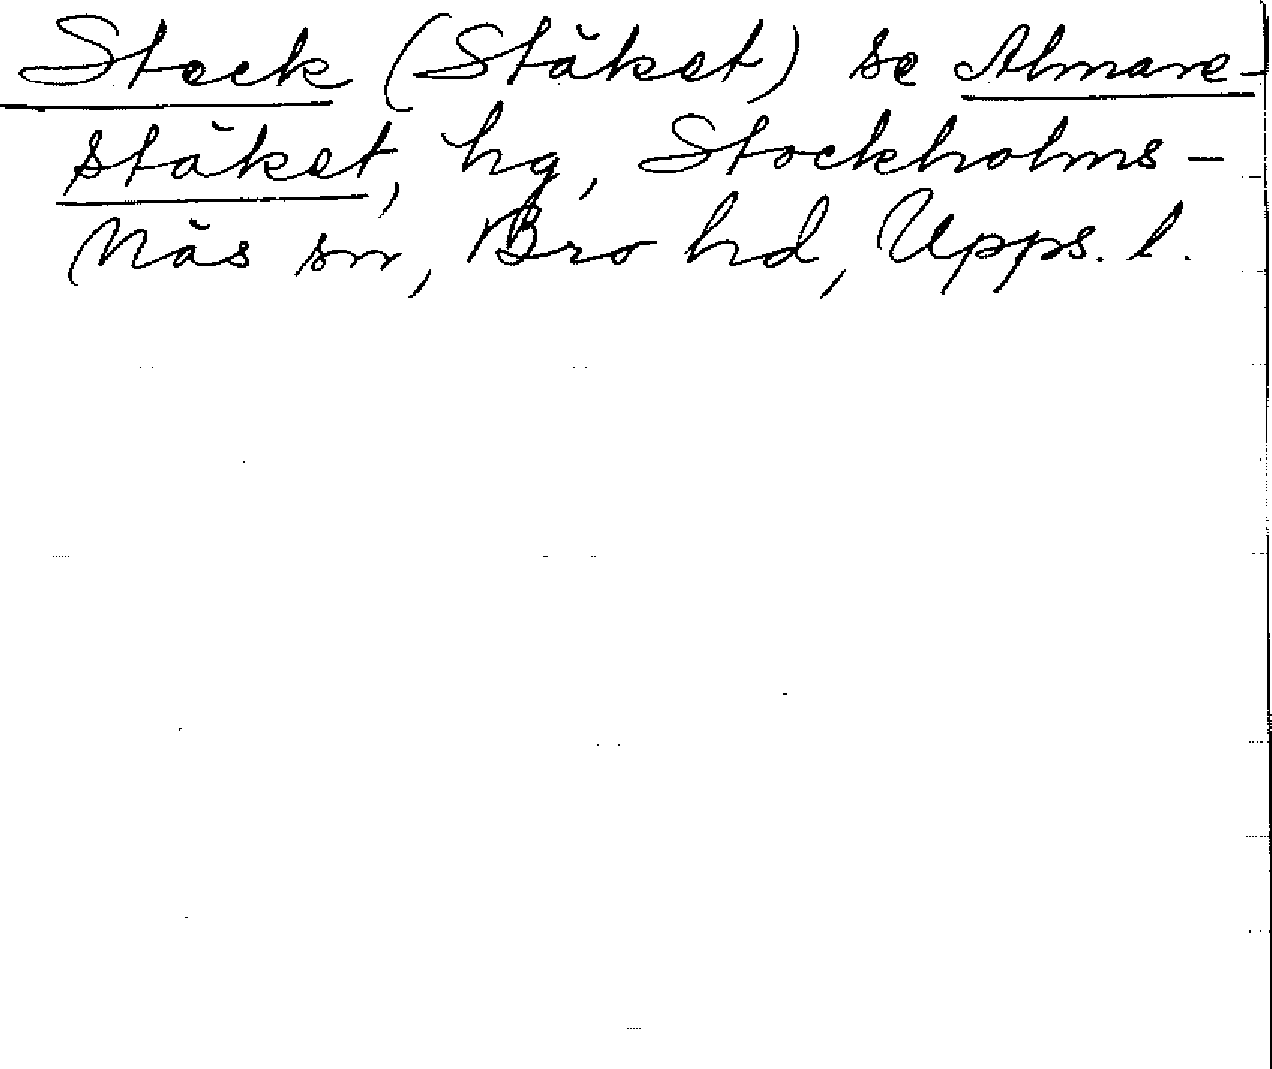 Steck (Stäket) se Almare-
stäket, hg, Stockholms-
Näs sn, Bro hd, Upps. l.